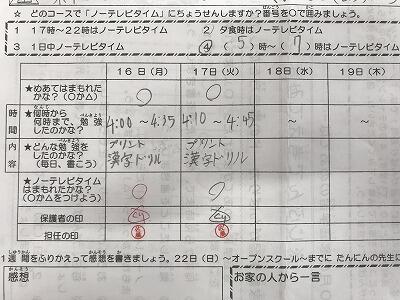 ☆ どのコースで「ノーテレビタイム」にちょうせんしますか?番号を○で囲みましょう。
1 17時~22時はノーテレビタイム 2 夕食時はノーテレビタイム
3 1日中ノーテレビタイム ④ (5)時~(7)時はノーテレビタイム
16日(月) 17日(火) 18日(水) 19日(木)
★めあてはまもれたかな?(○か△) ○ ○
時間
★何時から何時まで、勉強したのかな? 4:00~4:35 4:10~4:45 ~ ~
内容
★どんな勉強をしたのかな?(毎日、書こう) プリント 漢字ドリル プリント 漢字ドリル
★ノーテレビタイムはまもれたかな?(○か△をつけよう) ○ ○
保護者の印
担任の印
1週間をふりかえって感想を書きましょう。22日(日)~オープンスクール~までに たんにんの先生に
感想
お家の人から一言